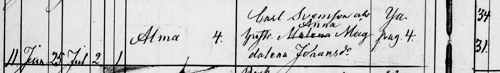 Carl Svensson och Ya. 34
Anna
Alma 4. hustr. Malena Mag pag. 4.
11 Jun 25 Jul 2 1 dalena Johansd. 31.